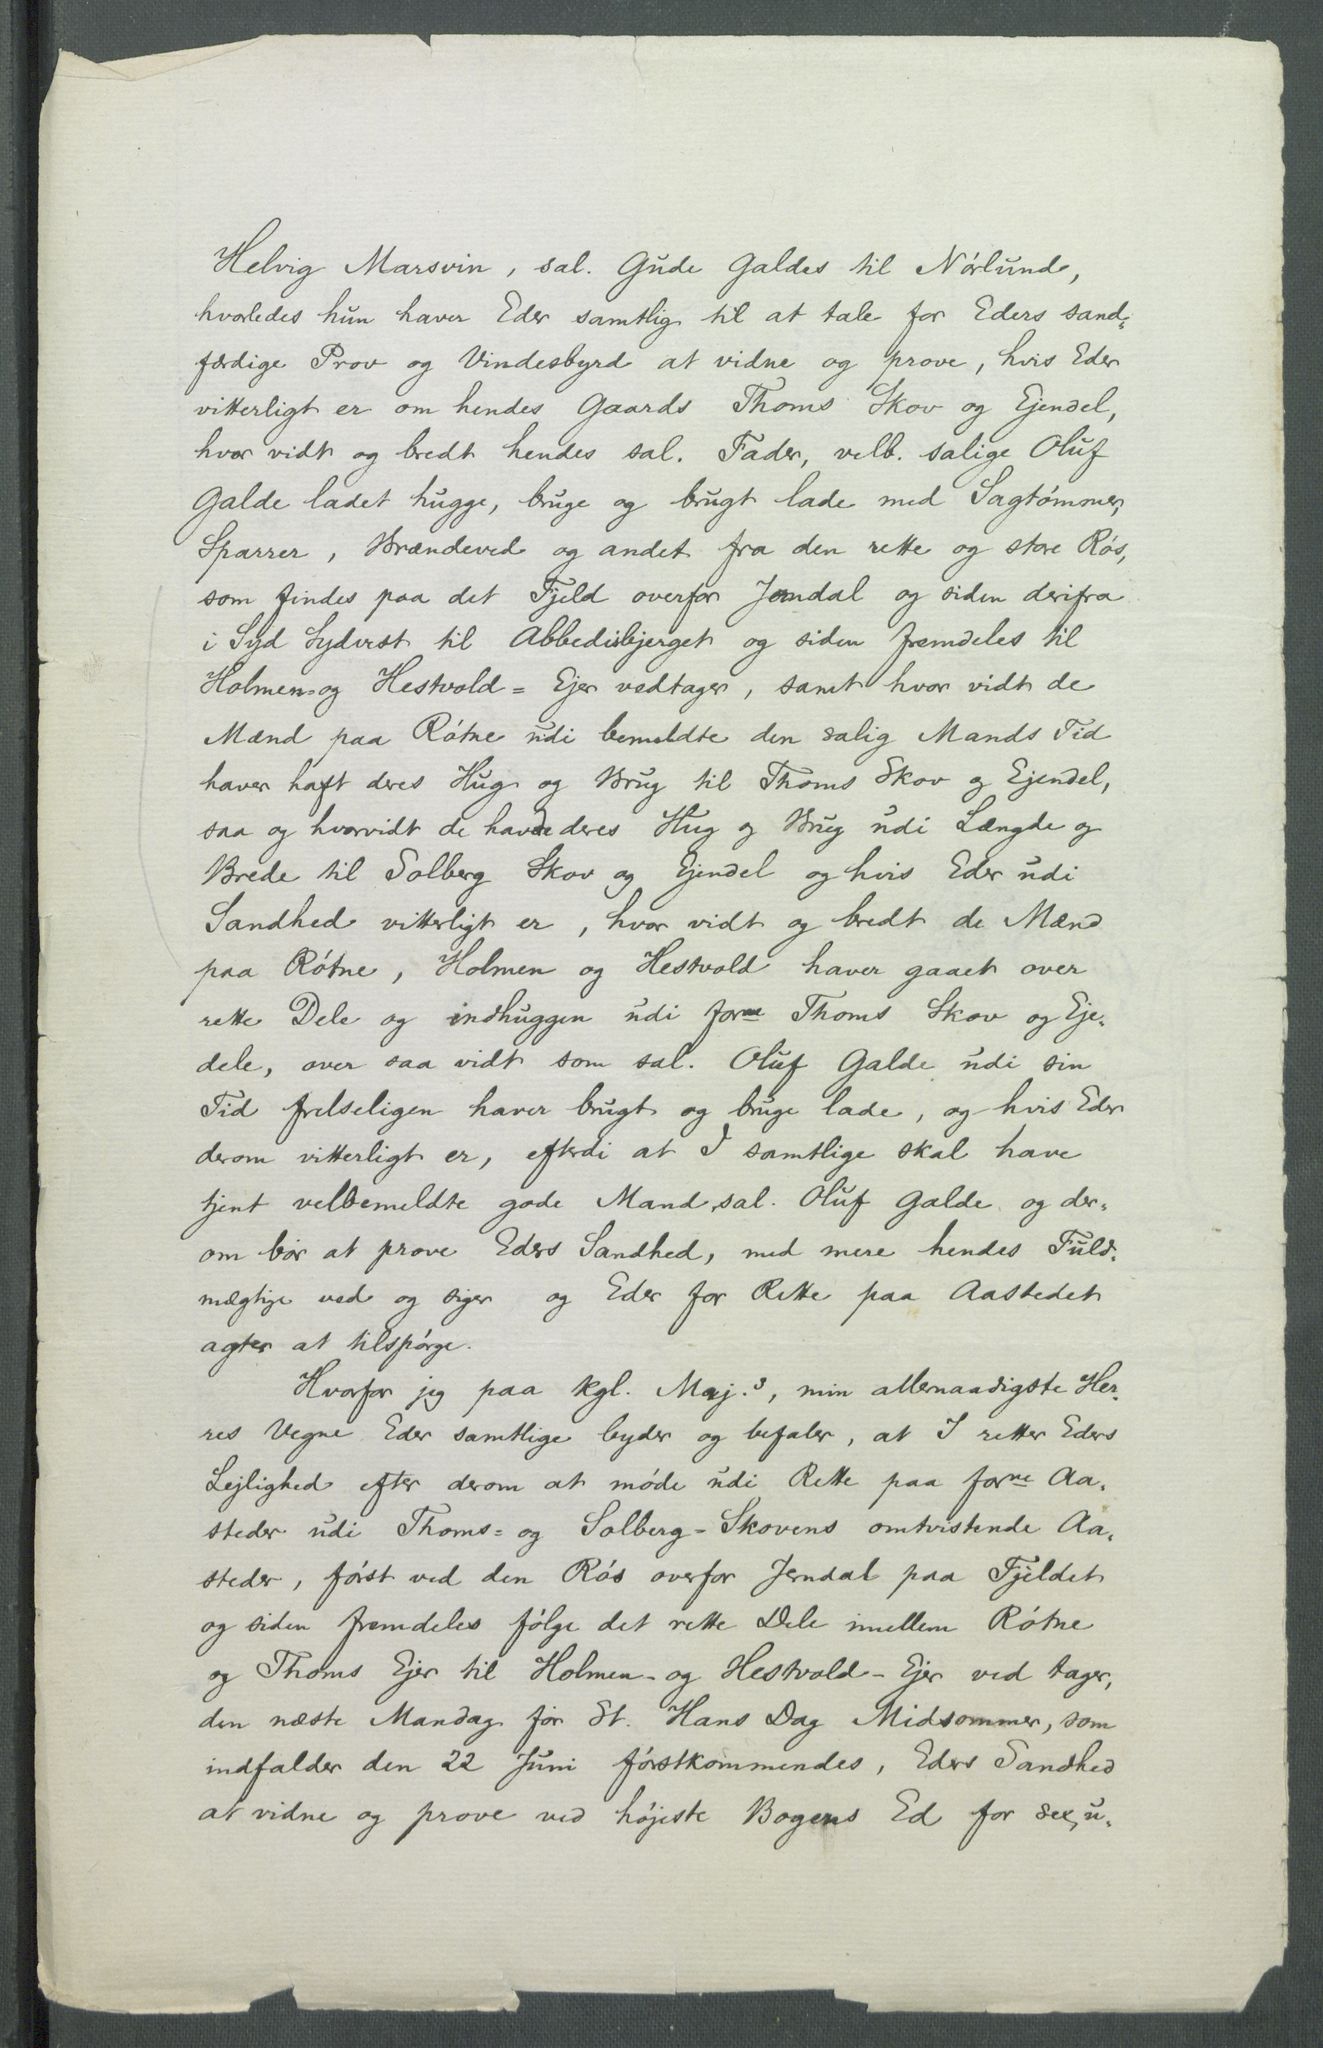 Helvig Marsvin, sal. Gude Galdes til Nörlund,
hvorledes hun haver Eder samtlig til at tale for Eders sand-
færdige Prov og Vindesbyrd at vidne og prove, hvis Eder
vitterligt er om hendes Gaards Thoms Skov og Ejendel,
hvor vidt og bredt hendes sal. Fader, velb. salige Oluf
Galde ladet hugge, bruge og brugt lade med Sagtömmer,
Sparrer, Brændeved og andet fra den rette og store Rös,
som findes paa det Fjeld overfor Jerndal og siden derifra
i Syd Sydvest til Abbedisbjerget og siden fremdeles til
Holmen- og Hestvold = Ejer vedtager, samt hvor vidt de
Mænd paa Rötne udi bemeldte den salig Mands Tid
haver haft deres Hug og Brug til Thoms Skov og Ejendel,
saa og hvorvidt de havde deres Hug og Brug udi Længde og
Brede til Solberg Skov og Ejendel og hvis Eder udi
Sandhed vitterligt er, hvor vidt og bredt de Mænd
paa Rötne, Holmen og Hestvold haver gaaet over
rette Dele og indhuggen udi forne Thoms Skov og Eje-
dele, over saa vidt som sal. Oluf Galde udi sin
Tid frelseligen haver brugt og bruge lade, og hvis Eder
derom vitterligt er, efterdi at I samtlige skal have
tjent velbemeldte gode Mand, sal. Oluf Galde og der-
om bör at prove Eders Sandhed, med mere hendes Fuld-
mægtige ved og siger og Eder for Rette paa Aastedet
agter at tilspörge.
Hvorfor jeg paa Kgl. Maj.s, min allernaadigste Her-
res Vegne Eder samtlige byder og befaler, at I retter Eders
Lejlighed efter derom at möde udi Rette paa forne Aa-
steder udi Thoms= og Solberg-Skovens omtvistende Aa-
steder, först ved den Rös overfor Jerndal paa Fjeldet
og siden fremdeles fölge det rette Dele imellem Rötne
og Thoms Ejer til Holmen- og Hestvold- Ejer ved tager,
den næste Mandag för St. Hans Dag Midsommer, som
indfalder den 22 Juni förstkommendes, Eders Sandhed
at vidne og prove ved höjeste Bogens Ed for sex u-